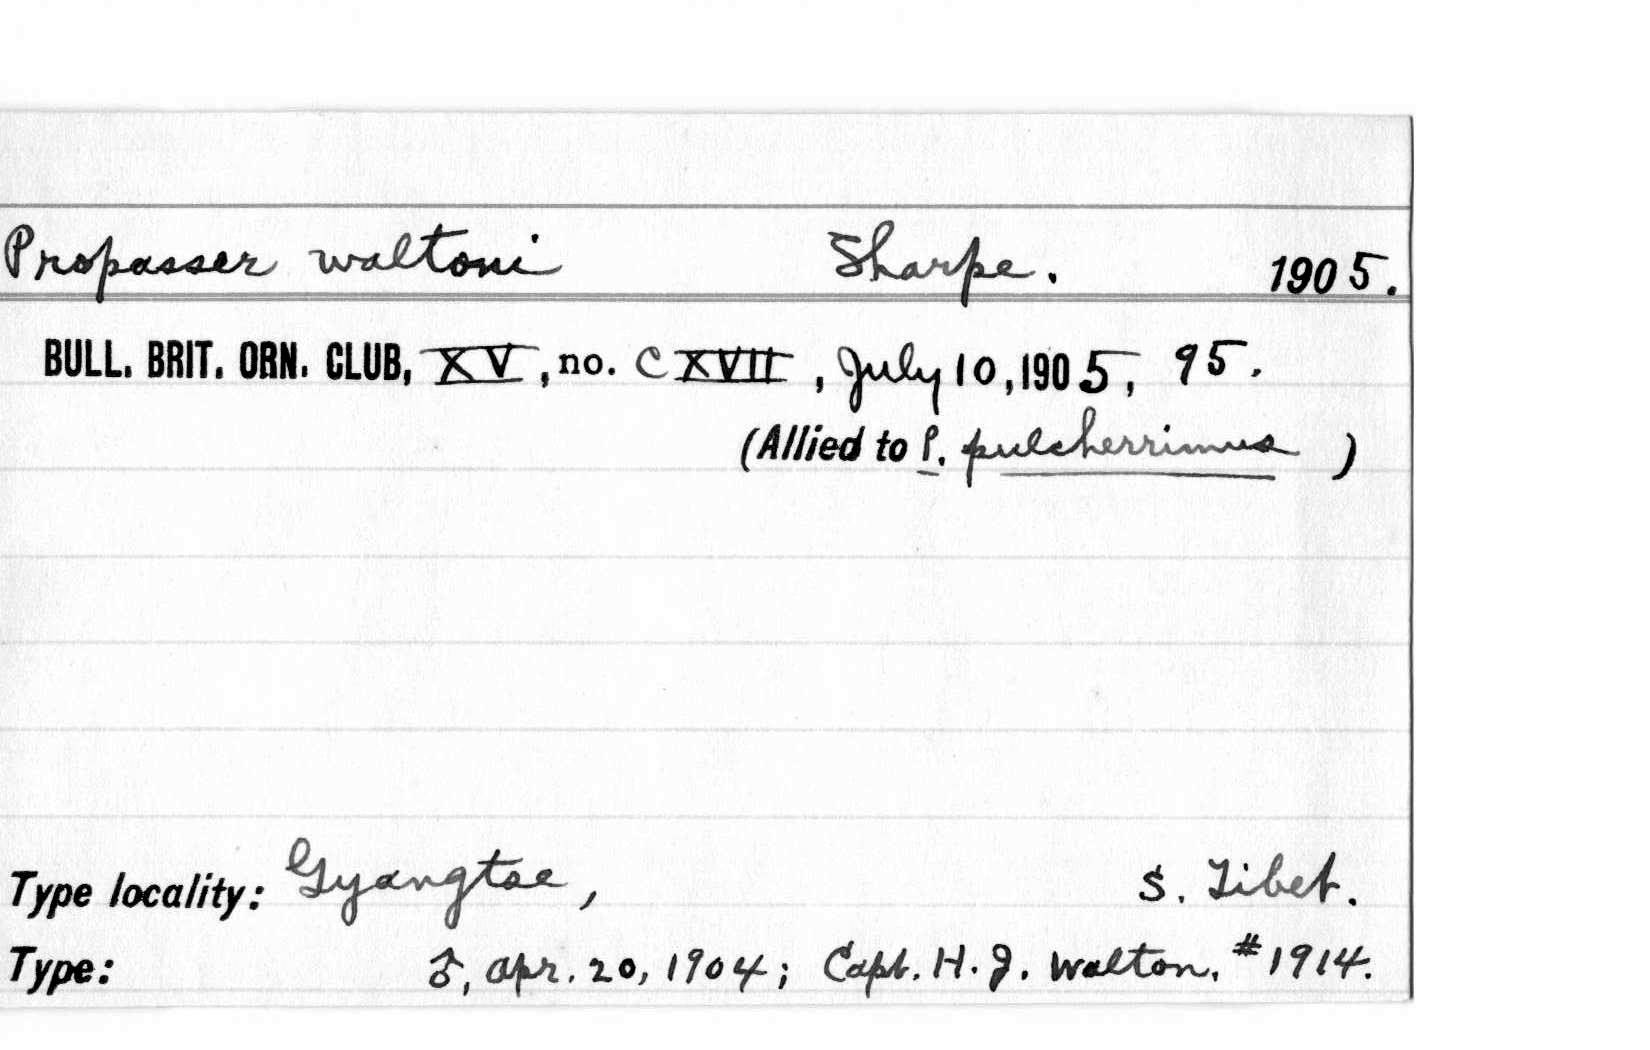 Propasser waltoni Sharpe. 1905.
BULL. BRIT. ORN. CLUB, XV, no. CXVII, July 10, 1905, 95.
(Allied to P. pulcherrimus )
Type locality: Gyangtse, S. Tibet.
Type: ♂, Apr. 20, 1904; Capt. H. J. Walton, #1914.